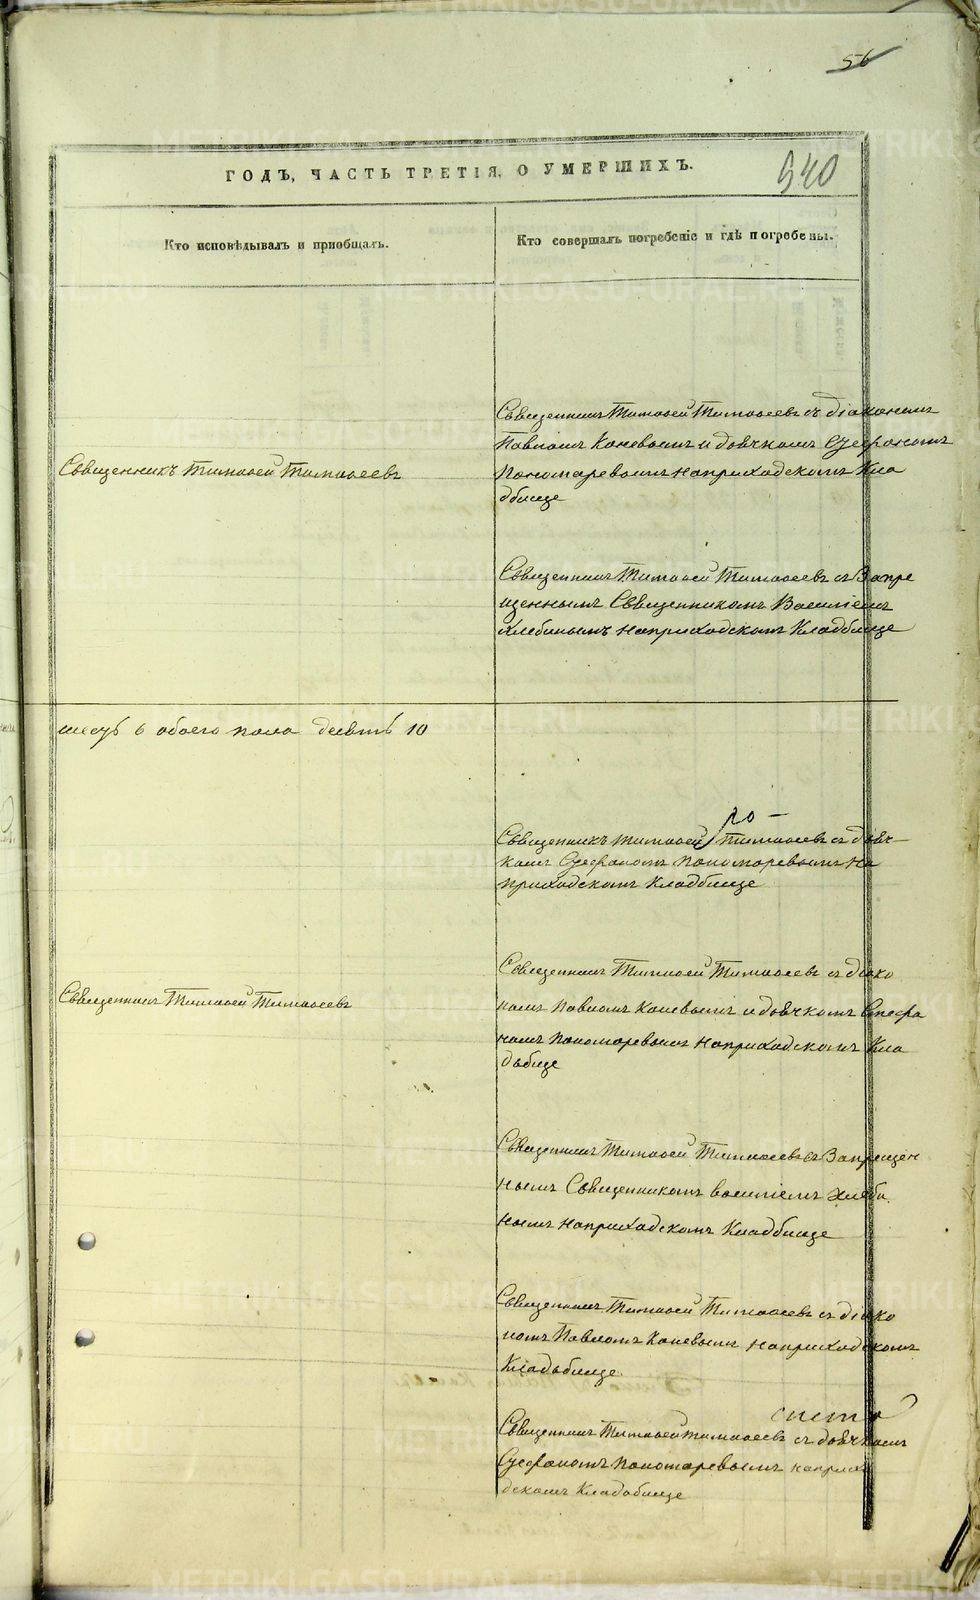 56
940
ГОДЪ, ЧАСТЬ ТРЕТІЯ, О УМЕРШИХЪ.
Кто исповѣдывалъ и пріобщалъ.
Кто совершалъ погребеніе и гдѣ погребены.
Священникъ Тимофей Тимофеевъ
Священникъ Тимофей Тимофеевъ съ діакономъ
Павломъ Каневымъ и дьячкомъ Стефаномъ
Пономаревымъ на приходскомъ Кла
дбище
Священникъ Тимофей Тимофеевъ съ Запре
щеннымъ Священникомъ Василіемъ
Хлебинымъ на приходскомъ Кладбище
шесть 6 обоего пола десять 10
Священникъ Тимофей Тимофеевъ съ дьяч
комъ Стефаномъ Пономаревымъ на
приходскомъ Кладбище
Священникъ Тимофей Тимофеевъ
Священникъ Тимофей Тимофеевъ съ діако
номъ Павломъ Каневымъ и дьячкомъ Стефа
номъ Пономаревымъ на приходскомъ Кла
дьбище
Священникъ Тимофей Тимофеевъ съ Запрещен
нымъ Священникомъ Василіемъ Хлеби
нымъ на приходскомъ Кладбище
Священникъ Тимофей Тимофеевъ съ діако
номъ Павломъ Каневымъ на приходскомъ
Кладьбище
Священникъ Тимофей Тимофеевъ съ дьячкомъ
Стефаномъ Пономаревымъ на прихо
дскомъ Кладбище
METRIKI.GASO-URAL.RU